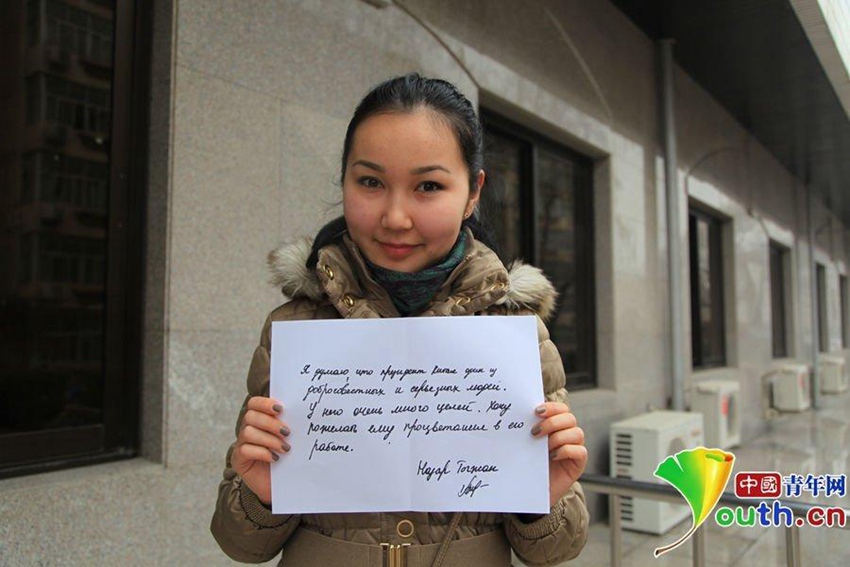 Я думаю, что президент Китая один из
добросовестных и серьезных людей.
У него очень много целей. Хочу
пожелать ему процветания в его
работе.
Назар Тогжан
中国青年网
youth.cn